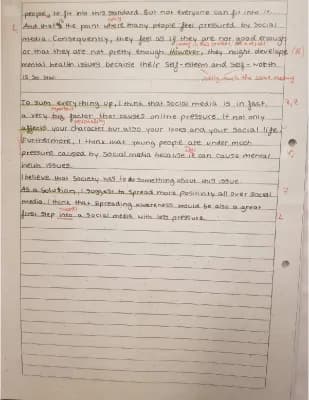 people, to fit into this standard. But not everyone can fit into it.
And that's the point where many people feel pressured by social
media. Consequently, they feel as if they are not good enough
or that they are not pretty enough. However, they might develope
mental health issues because their self-esteem and self-worth
is so low.
really much the same meaning
To sum everything up, I think that social media is in fact,
important
a very big factor that causes online pressure. It not only
personality
affects your character but also your looks and your social life.
Furthermore, I think that young people are under much
pressure caused by social media because it can cause mental
health issues.
I believe that society has to do something about this issue.
As a solution, I suggest to spread more positivity all over social
media. I think that spreading awareness would be also a great
towards
first step into a social media with less pressure.